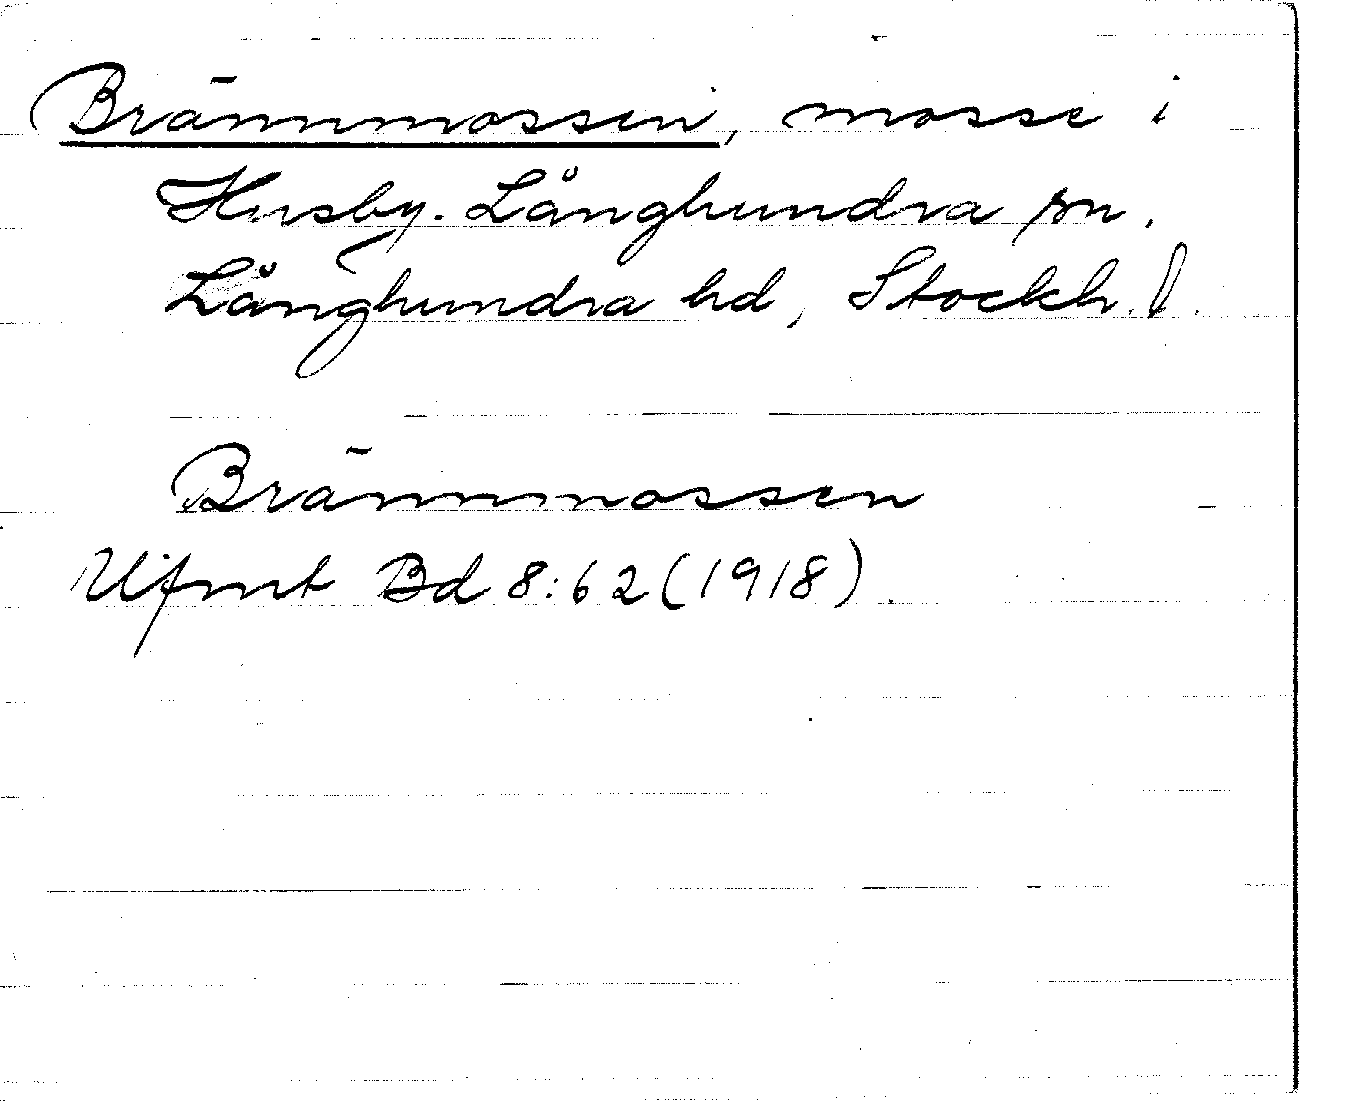 Brännmossen, mosse i
Husby-Långhundra sn,
Långhundra hd, Stockh. l.
Brännmossen
Ufmt Bd 8:62 (1918)